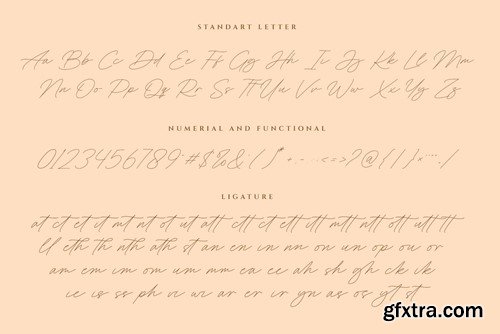 STANDART LETTER
Aa Bb Cc Dd Ee Ff Gg Hh Ii Jj Kk Ll Mm
Nn Oo Pp Qq Rr Ss Tt Uu Vv Ww Xx Yy Zz
NUMERIAL AND FUNCTIONAL
0123456789
#$%&
?@{|}
LIGATURE
at ct et it mt nt ot ut att ctt et ett itt mtt ntt ott utt tt
ll eth th nth ath st an en in nn on un op ou or
am em im om um mm ea ee ah sh gh ck ik
ie is ss ph vi wi ar er ir yn as os yt st
gfxtra.com